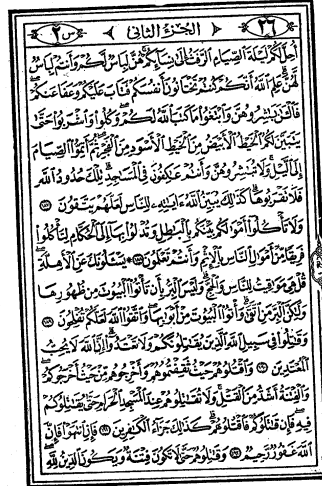 ٢٦ الجزء الثانى س ٢
أحل لكم ليلة الصيام الرفث إلى نسائكم هن لباس لكم وأنتم لباس
لهن علم الله أنكم كنتم تختانون أنفسكم فتاب عليكم وعفا عنكم
فالن بشروهن وابتغوا ما كتب الله لكم وكلوا واشربوا حتى
يتبين لكم الخيط الأبيض من الخيط الأسود من الفجر ثم أتموا الصيام
إلى اليل ولا تبشروهن وأنتم عكفون في المسجد تلك حدود الله
فلا تقربوها كذلك يبين الله ءايته للناس لعلهم يتقون ١٨٧
ولا تأكلوا أمولكم بينكم بالبطل وتدلوا بها إلى الحكام لتأكلوا
فريقا من أمول الناس بالإثم وأنتم تعلمون ١٨٨ يسئلونك عن الأهلة
قل هي موقيت للناس والحج وليس البر بأن تأتوا البيوت من ظهورها
ولكن البر من اتقى وأتوا البيوت من أبوبها واتقوا الله لعلكم تفلحون ١٨٩
وقتلوا في سبيل الله الذين يقتلونكم ولا تعتدوا إن الله لا يحب
المعتدين ١٩٠ واقتلوهم حيث ثقفتموهم وأخرجوهم من حيث أخرجوكم
والفتنة أشد من القتل ولا تقتلوهم عند المسجد الحرام حتى يقتلوكم
فيه فإن قتلوكم فاقتلوهم كذلك جزاء الكفرين ١٩١ فإن انتهوا فإن
الله غفور رحيم ١٩٢ وقتلوهم حتى لا تكون فتنة ويكون الدين لله